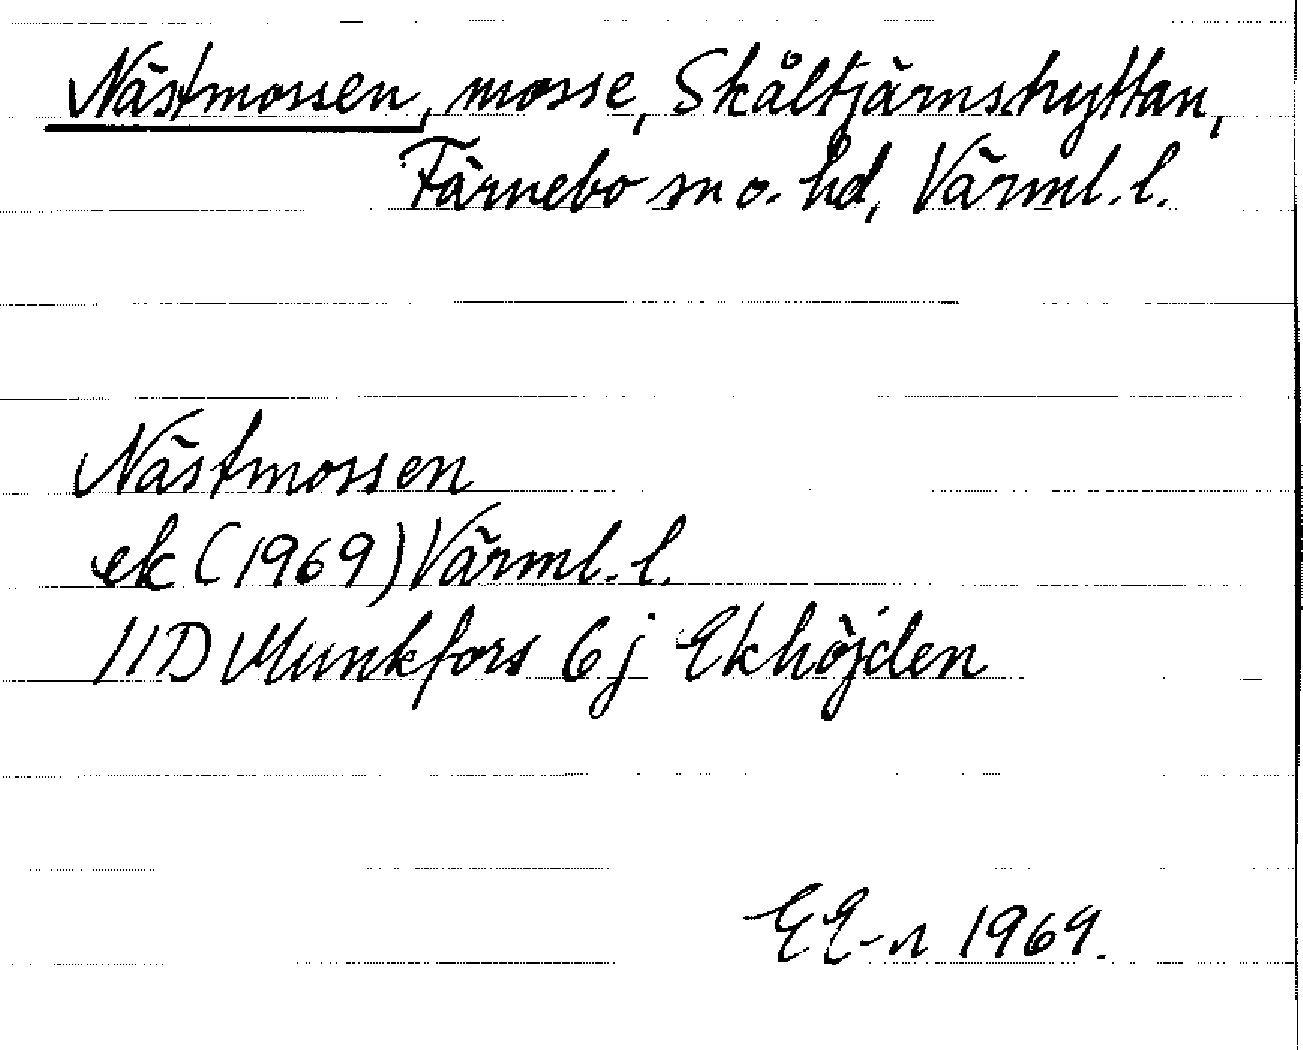 Nästmossen, mosse, Skåltjärnshyttan,
Färnebo sn o. hd, Värml. l.
Nästmossen
ek (1969) Värml. l.
11D Munkfors 6j Ekhöjden
EE-n 1969.